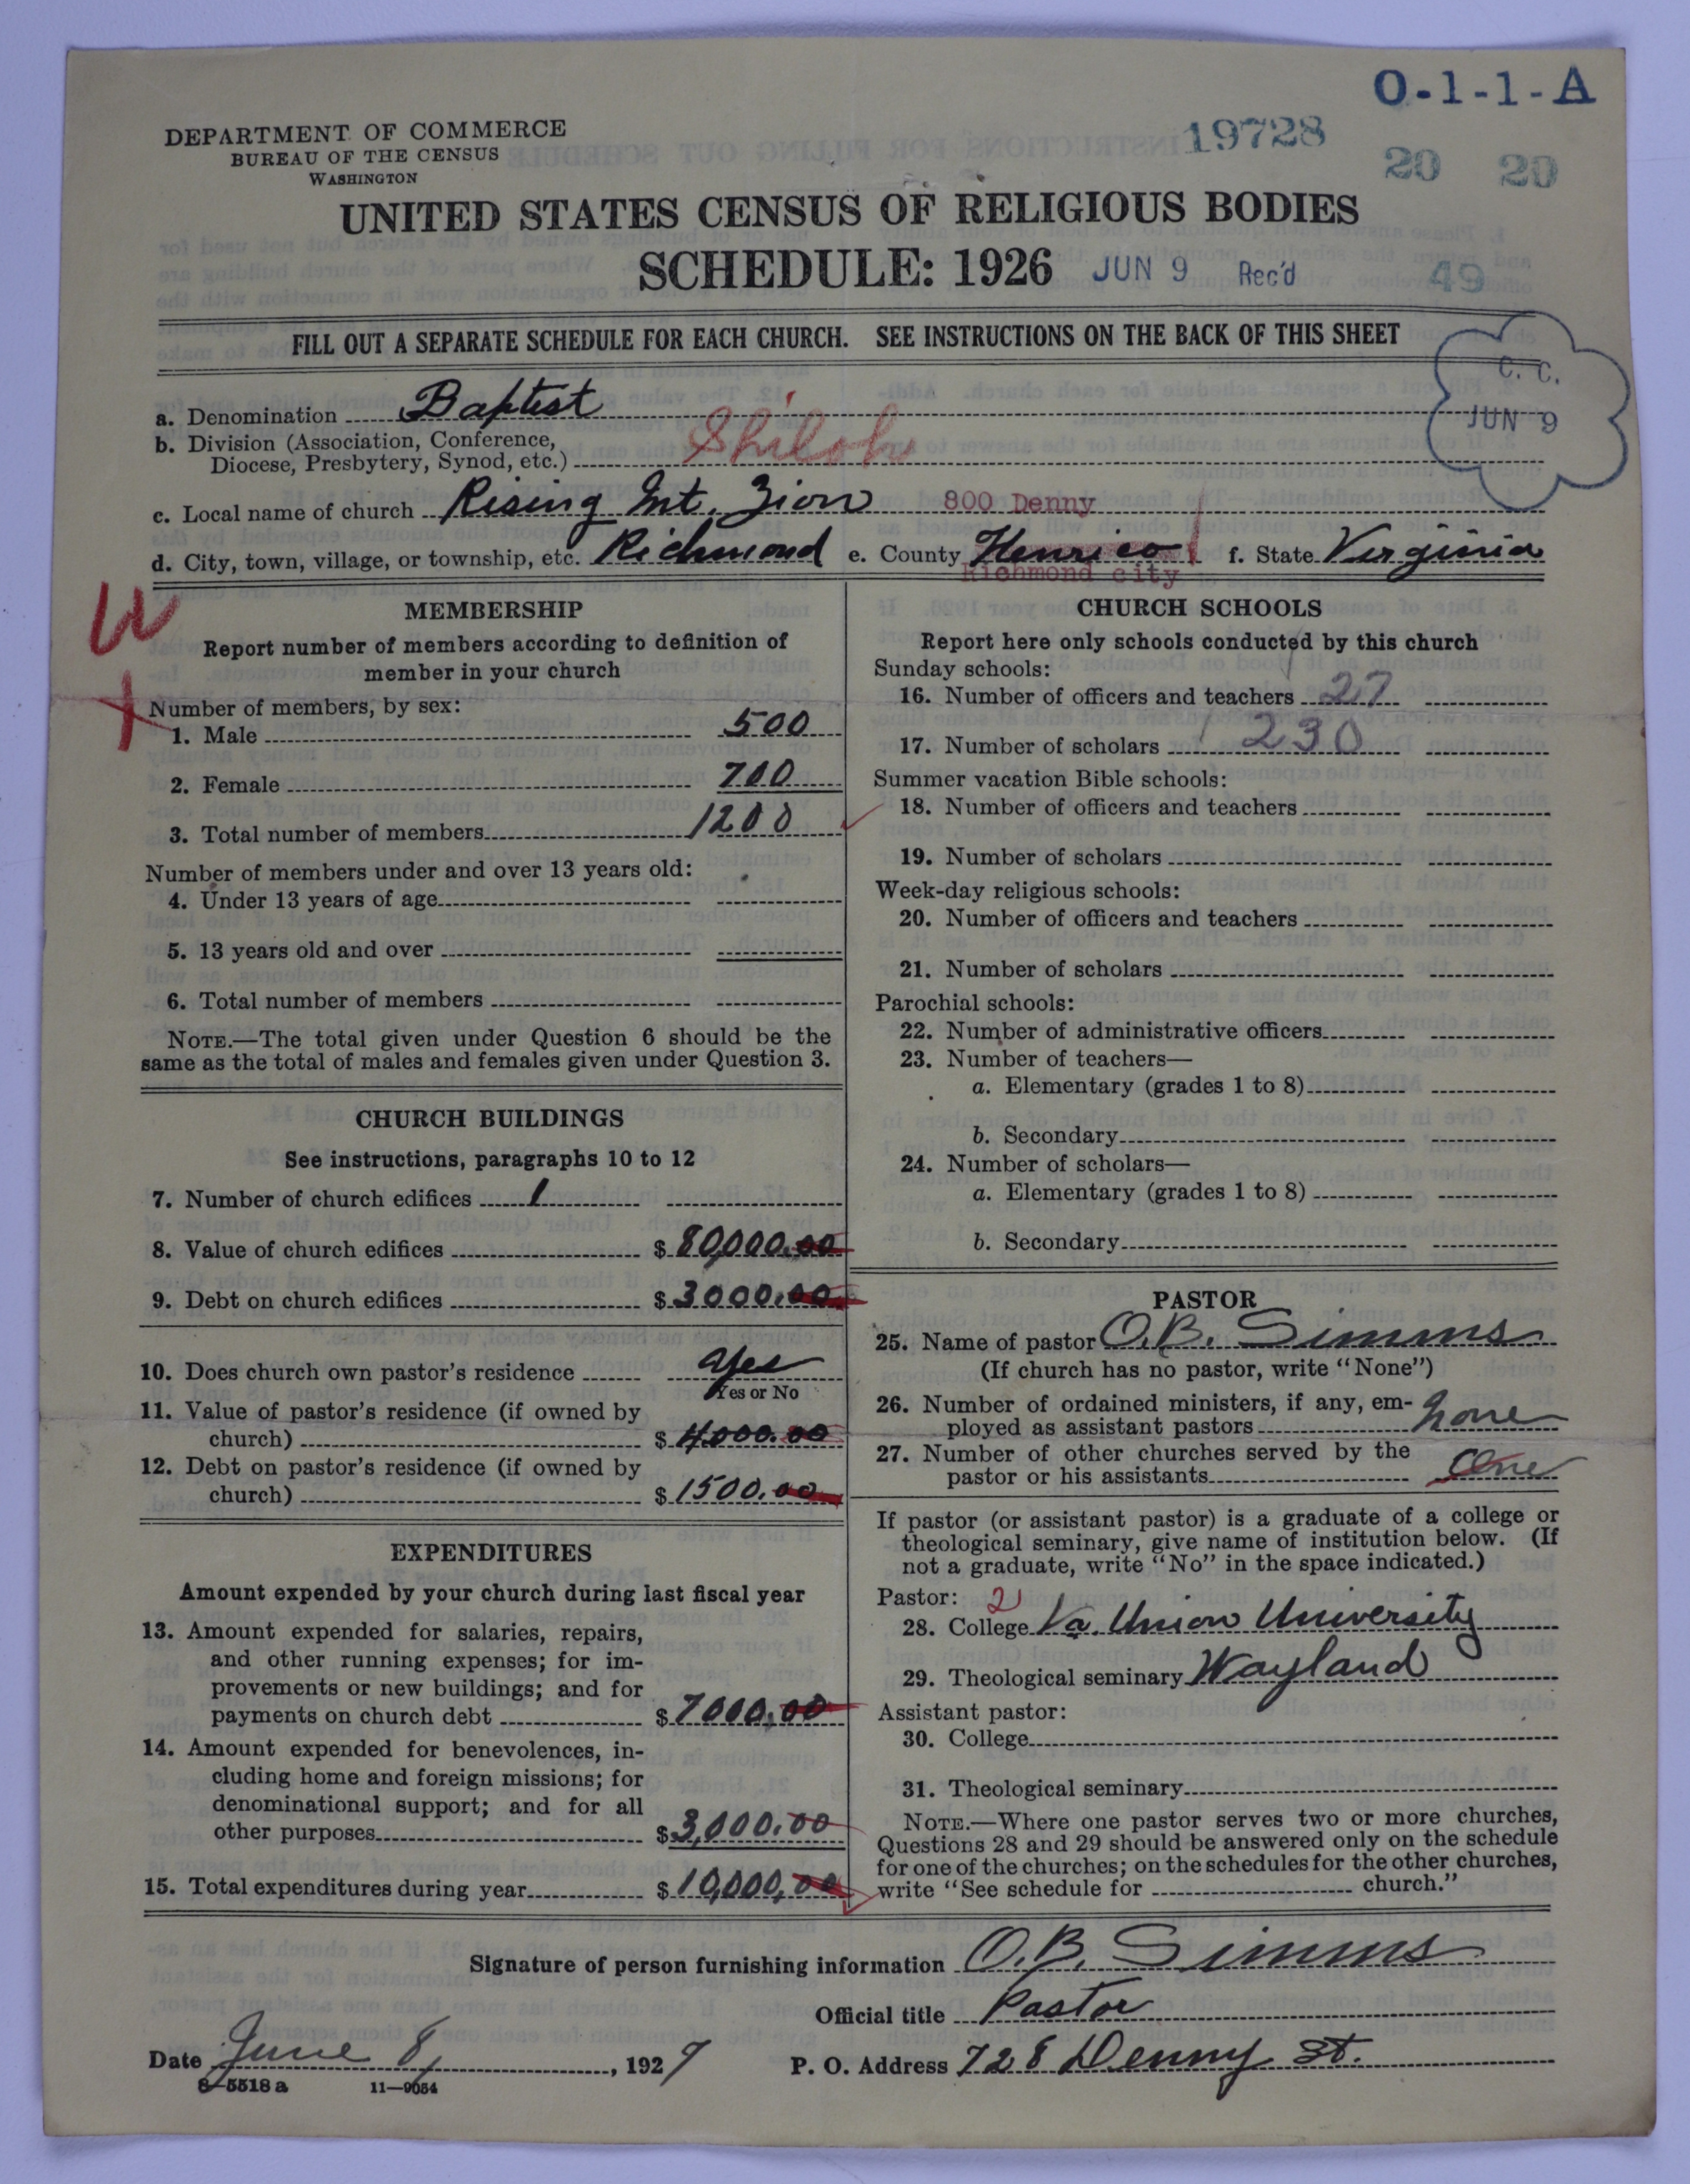 O-1-1-A
DEPARTMENT OF COMMERCE
BUREAU OF THE CENSUS
WASHINGTON
19728
20 20
UNITED STATES CENSUS OF RELIGIOUS BODIES
SCHEDULE: 1926 JUN 9 Rec'd 49
FILL OUT A SEPARATE SCHEDULE FOR EACH CHURCH. SEE INSTRUCTIONS ON THE BACK OF THIS SHEET
C. C.
JUN 9
a. Denomination Baptist
b. Division (Association, Conference,
Diocese, Presbytery, Synod, etc.) Shiloh
c. Local name of church Rising Mt. Zion 800 Denny
d. City, town, village, or township, etc. Richmond e. County Henrico f. State Virginia
Richmond city
MEMBERSHIP
Report number of members according to definition of
member in your church
Number of members, by sex:
1. Male 500
2. Female 700
3. Total number of members 1200
Number of members under and over 13 years old:
4. Under 13 years of age
5. 13 years old and over
6. Total number of members
NOTE.—The total given under Question 6 should be the
same as the total of males and females given under Question 3.
CHURCH BUILDINGS
See instructions, paragraphs 10 to 12
7. Number of church edifices 1
8. Value of church edifices $ 80,000.00
9. Debt on church edifices $ 3000.00
10. Does church own pastor's residence Yes
Yes or No
11. Value of pastor's residence (if owned by
church) $ 4000.00
12. Debt on pastor's residence (if owned by
church) $ 1500.00
EXPENDITURES
Amount expended by your church during last fiscal year
13. Amount expended for salaries, repairs,
and other running expenses; for im-
provements or new buildings; and for
payments on church debt $ 7000.00
14. Amount expended for benevolences, in-
cluding home and foreign missions; for
denominational support; and for all
other purposes $ 3,000.00
15. Total expenditures during year $ 10,000.00
CHURCH SCHOOLS
Report here only schools conducted by this church
Sunday schools:
16. Number of officers and teachers 27
17. Number of scholars 230
Summer vacation Bible schools:
18. Number of officers and teachers
19. Number of scholars
Week-day religious schools:
20. Number of officers and teachers
21. Number of scholars
Parochial schools:
22. Number of administrative officers
23. Number of teachers—
a. Elementary (grades 1 to 8)
b. Secondary
24. Number of scholars—
a. Elementary (grades 1 to 8)
b. Secondary
PASTOR
25. Name of pastor O. B. Simms
(If church has no pastor, write "None")
26. Number of ordained ministers, if any, em-
ployed as assistant pastors none
27. Number of other churches served by the
pastor or his assistants One
If pastor (or assistant pastor) is a graduate of a college or
theological seminary, give name of institution below. (If
not a graduate, write "No" in the space indicated.)
Pastor: 2
28. College Va. Union University
29. Theological seminary Wayland
Assistant pastor:
30. College
31. Theological seminary
NOTE.—Where one pastor serves two or more churches,
Questions 28 and 29 should be answered only on the schedule
for one of the churches; on the schedules for the other churches,
write "See schedule for church."
Signature of person furnishing information O. B. Simms
Official title Pastor
Date June 8, 1927 P. O. Address 728 Denny St.
8—5518 a 11—9054